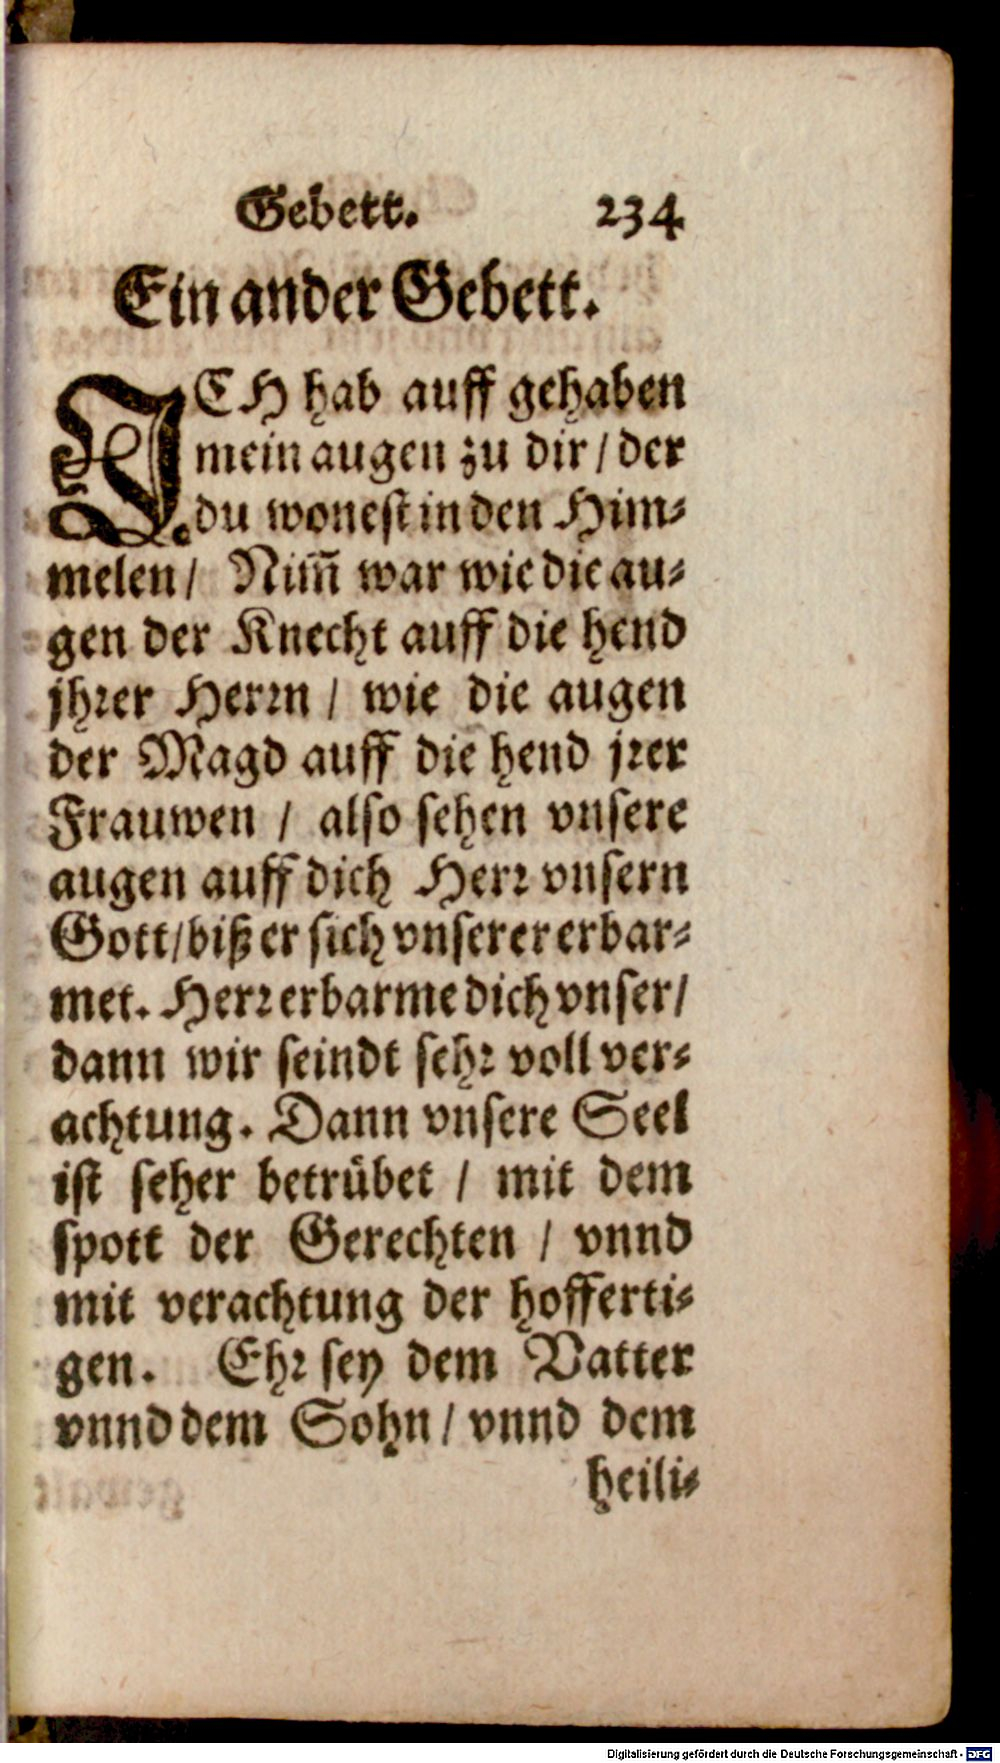 Gebett. 234
Ein ander Gebett.
ICH hab auff gehaben
mein augen zu dir / der
du wonest in den Him⸗
melen / Nim̃ war wie die au⸗
gen der Knecht auff die hend
jhrer Herrn / wie die augen
der Magd auff die hend jrer
Frauwen / also sehen vnsere
augen auff dich Herr vnsern
Gott / biß er sich vnserer erbar⸗
met. Herr erbarme dich vnser /
dann wir seindt sehr voll ver⸗
achtung. Dann vnsere Seel
ist seher betrübet / mit dem
spott der Gerechten / vnnd
mit verachtung der hofferti⸗
gen. Ehr sey dem Vatter
vnnd dem Sohn / vnnd dem
heili⸗
Digitalisierung gefördert durch die Deutsche Forschungsgemeinschaft - DFG